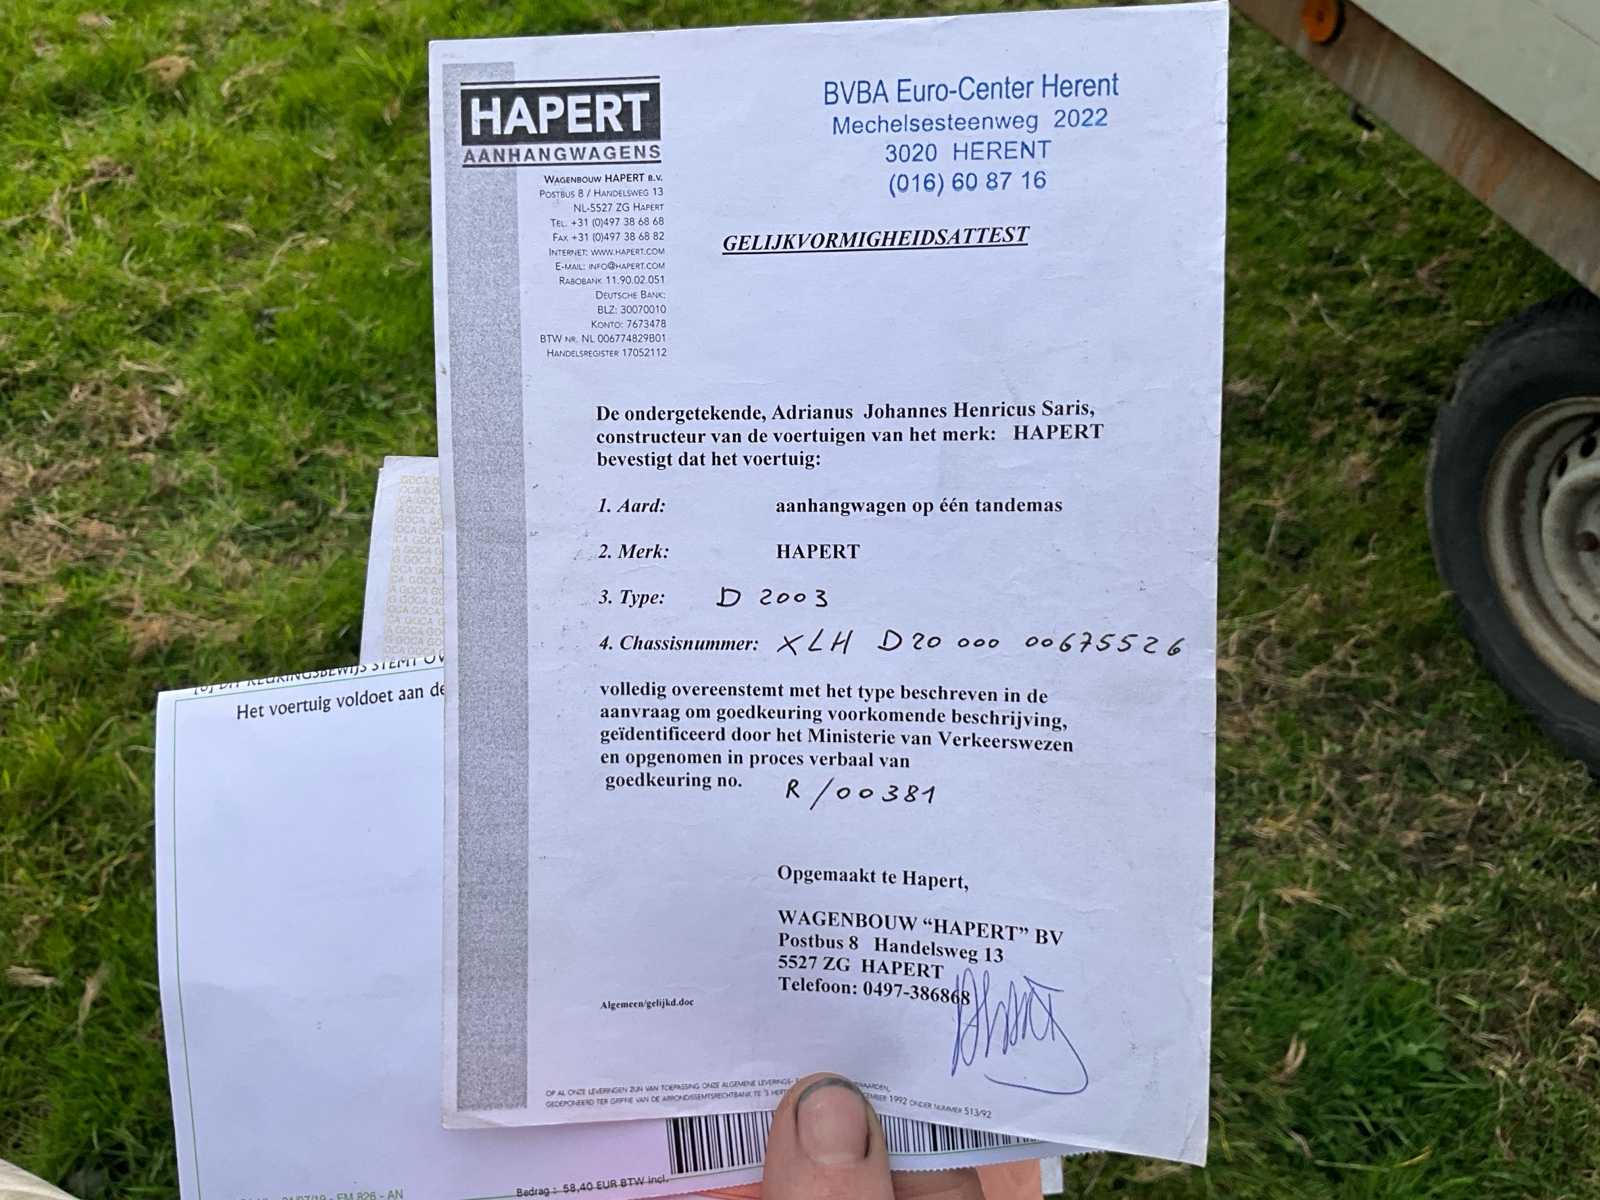 HAPERT
AANHANGWAGENS
WAGENBOUW HAPERT B.V.
POSTBUS 8 / HANDELSWEG 13
NL-5527 ZG HAPERT
TEL. +31 (0)497 38 68 68
FAX +31 (0)497 38 68 82
INTERNET: WWW.HAPERT.COM
E-MAIL: INFO@HAPERT.COM
RABOBANK 11.90.02.051
DEUTSCHE BANK:
BLZ: 30070010
KONTO: 7673478
BTW NR. NL 006774829B01
HANDELSREGISTER 17052112
BVBA Euro-Center Herent
Mechelsesteenweg 2022
3020 HERENT
(016) 60 87 16
GELIJKVORMIGHEIDSATTEST
De ondergetekende, Adrianus Johannes Henricus Saris,
constructeur van de voertuigen van het merk: HAPERT
bevestigt dat het voertuig:
1. Aard: aanhangwagen op één tandemas
2. Merk: HAPERT
3. Type: D 2003
4. Chassisnummer: XLH D20 000 00675526
volledig overeenstemt met het type beschreven in de
aanvraag om goedkeuring voorkomende beschrijving,
geïdentificeerd door het Ministerie van Verkeerswezen
en opgenomen in proces verbaal van
goedkeuring no. R/00381
Opgemaakt te Hapert,
WAGENBOUW “HAPERT” BV
Postbus 8 Handelsweg 13
5527 ZG HAPERT
Telefoon: 0497-386868
Algemeen/gelijkd.doc
OP AL ONZE LEVERINGEN ZIJN VAN TOEPASSING ONZE ALGEMENE LEVERINGS-
GEDEPONEERD TER GRIFFIE VAN DE ARRONDISSEMTSRECHTBANK TE 'S 1992 ONDER NUMMER 513/92
DIT KEURINGSBEWIJS STEMT
Het voertuig voldoet aan de
Bedrag : 58,40 EUR BTW incl.
EM 826 - AN